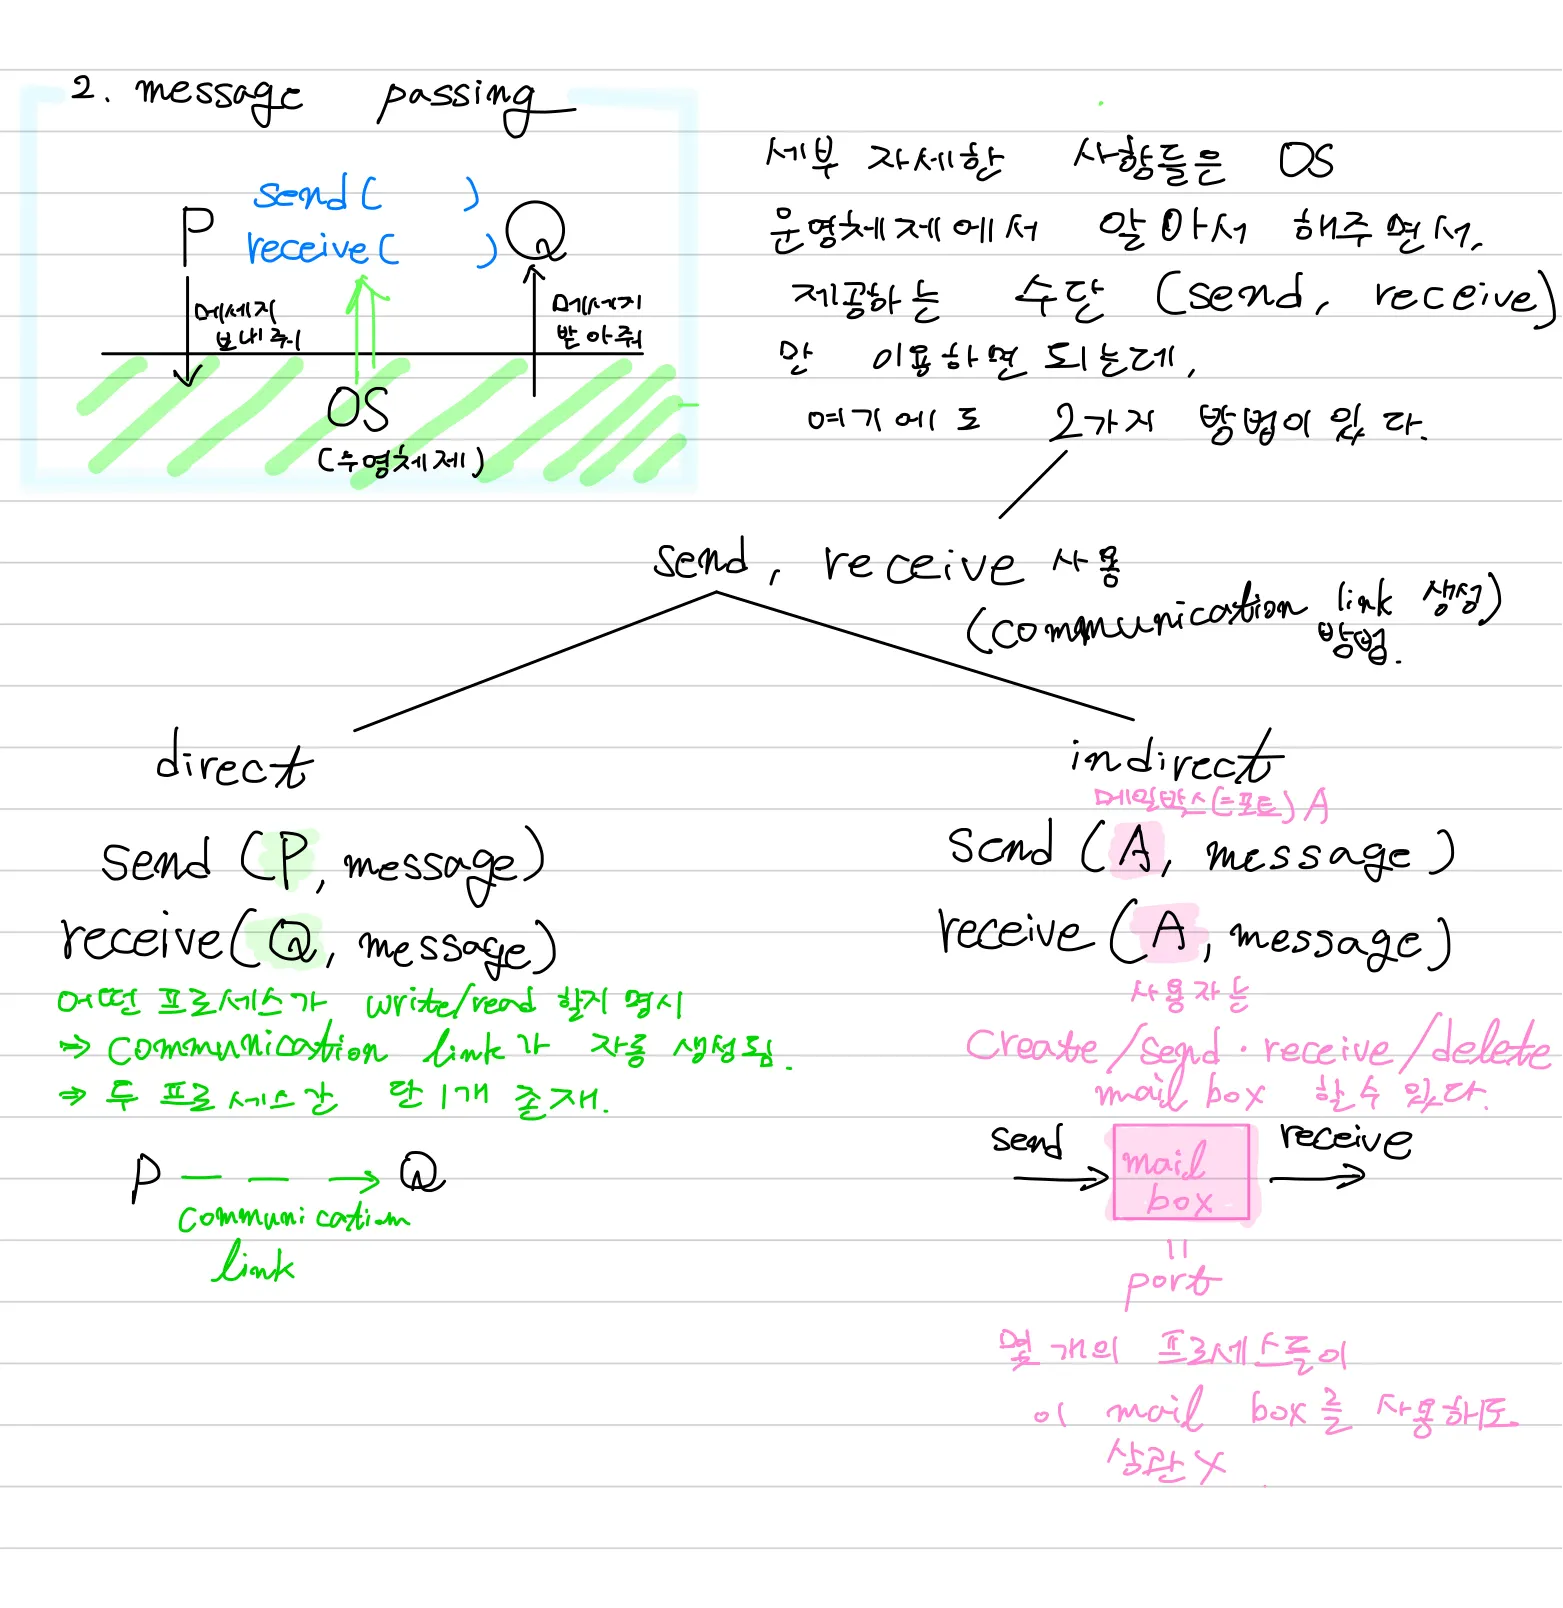 2. message passing
send( )
P
receive( )
Q
메세지
보내줘
메세지
받아줘
OS
(우영체제)
세부 자세한 사항들은 OS
운영체제에서 알아서 해주면서,
제공하는 수단 (send, receive)
만 이용하면 되는데,
여기에도 2가지 방법이 있다.
send, receive 사용
(communication link 생성)
방법.
direct
send (P, message)
receive(Q, message)
어떤 프로세스가 write/read 할지 명시
⇒ communication link가 자동 생성됨.
⇒ 두 프로세스간 단 1개 존재.
P → Q
communication
link
indirect
메일박스(=포트) A
send (A, message)
receive (A, message)
사용자는
Create/send · receive/delete
mail box 할수 있다.
send
mail
box
receive
=
port
몇 개의 프로세스들이
이 mail box를 사용해도
상관X